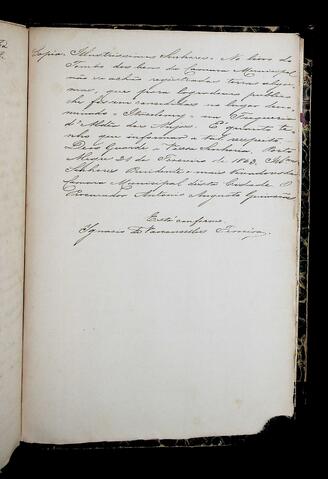 Copia. Illustrissimos Senhores. No livro do
Tombo dos bens da Camara Municipal
não se achão registrados terrenos
que para logradouro publico
fossem concedidos no lugar deno-
minado - - na Freguesia
d'Aldêa dos Anjos. É quanto te-
nho que informar a tal respeito.
Deos Guarde a Vossas Senhorias. Porto
Alegre 21 de Fevereiro de 1863. Illmos
Senhores Presidente e mais Vereadores da
Camara Municipal desta Cidade. O
Procurador Antonio Augusto Guimarães
Está conforme.
Ignacio de Vasconcellos Ferreira.